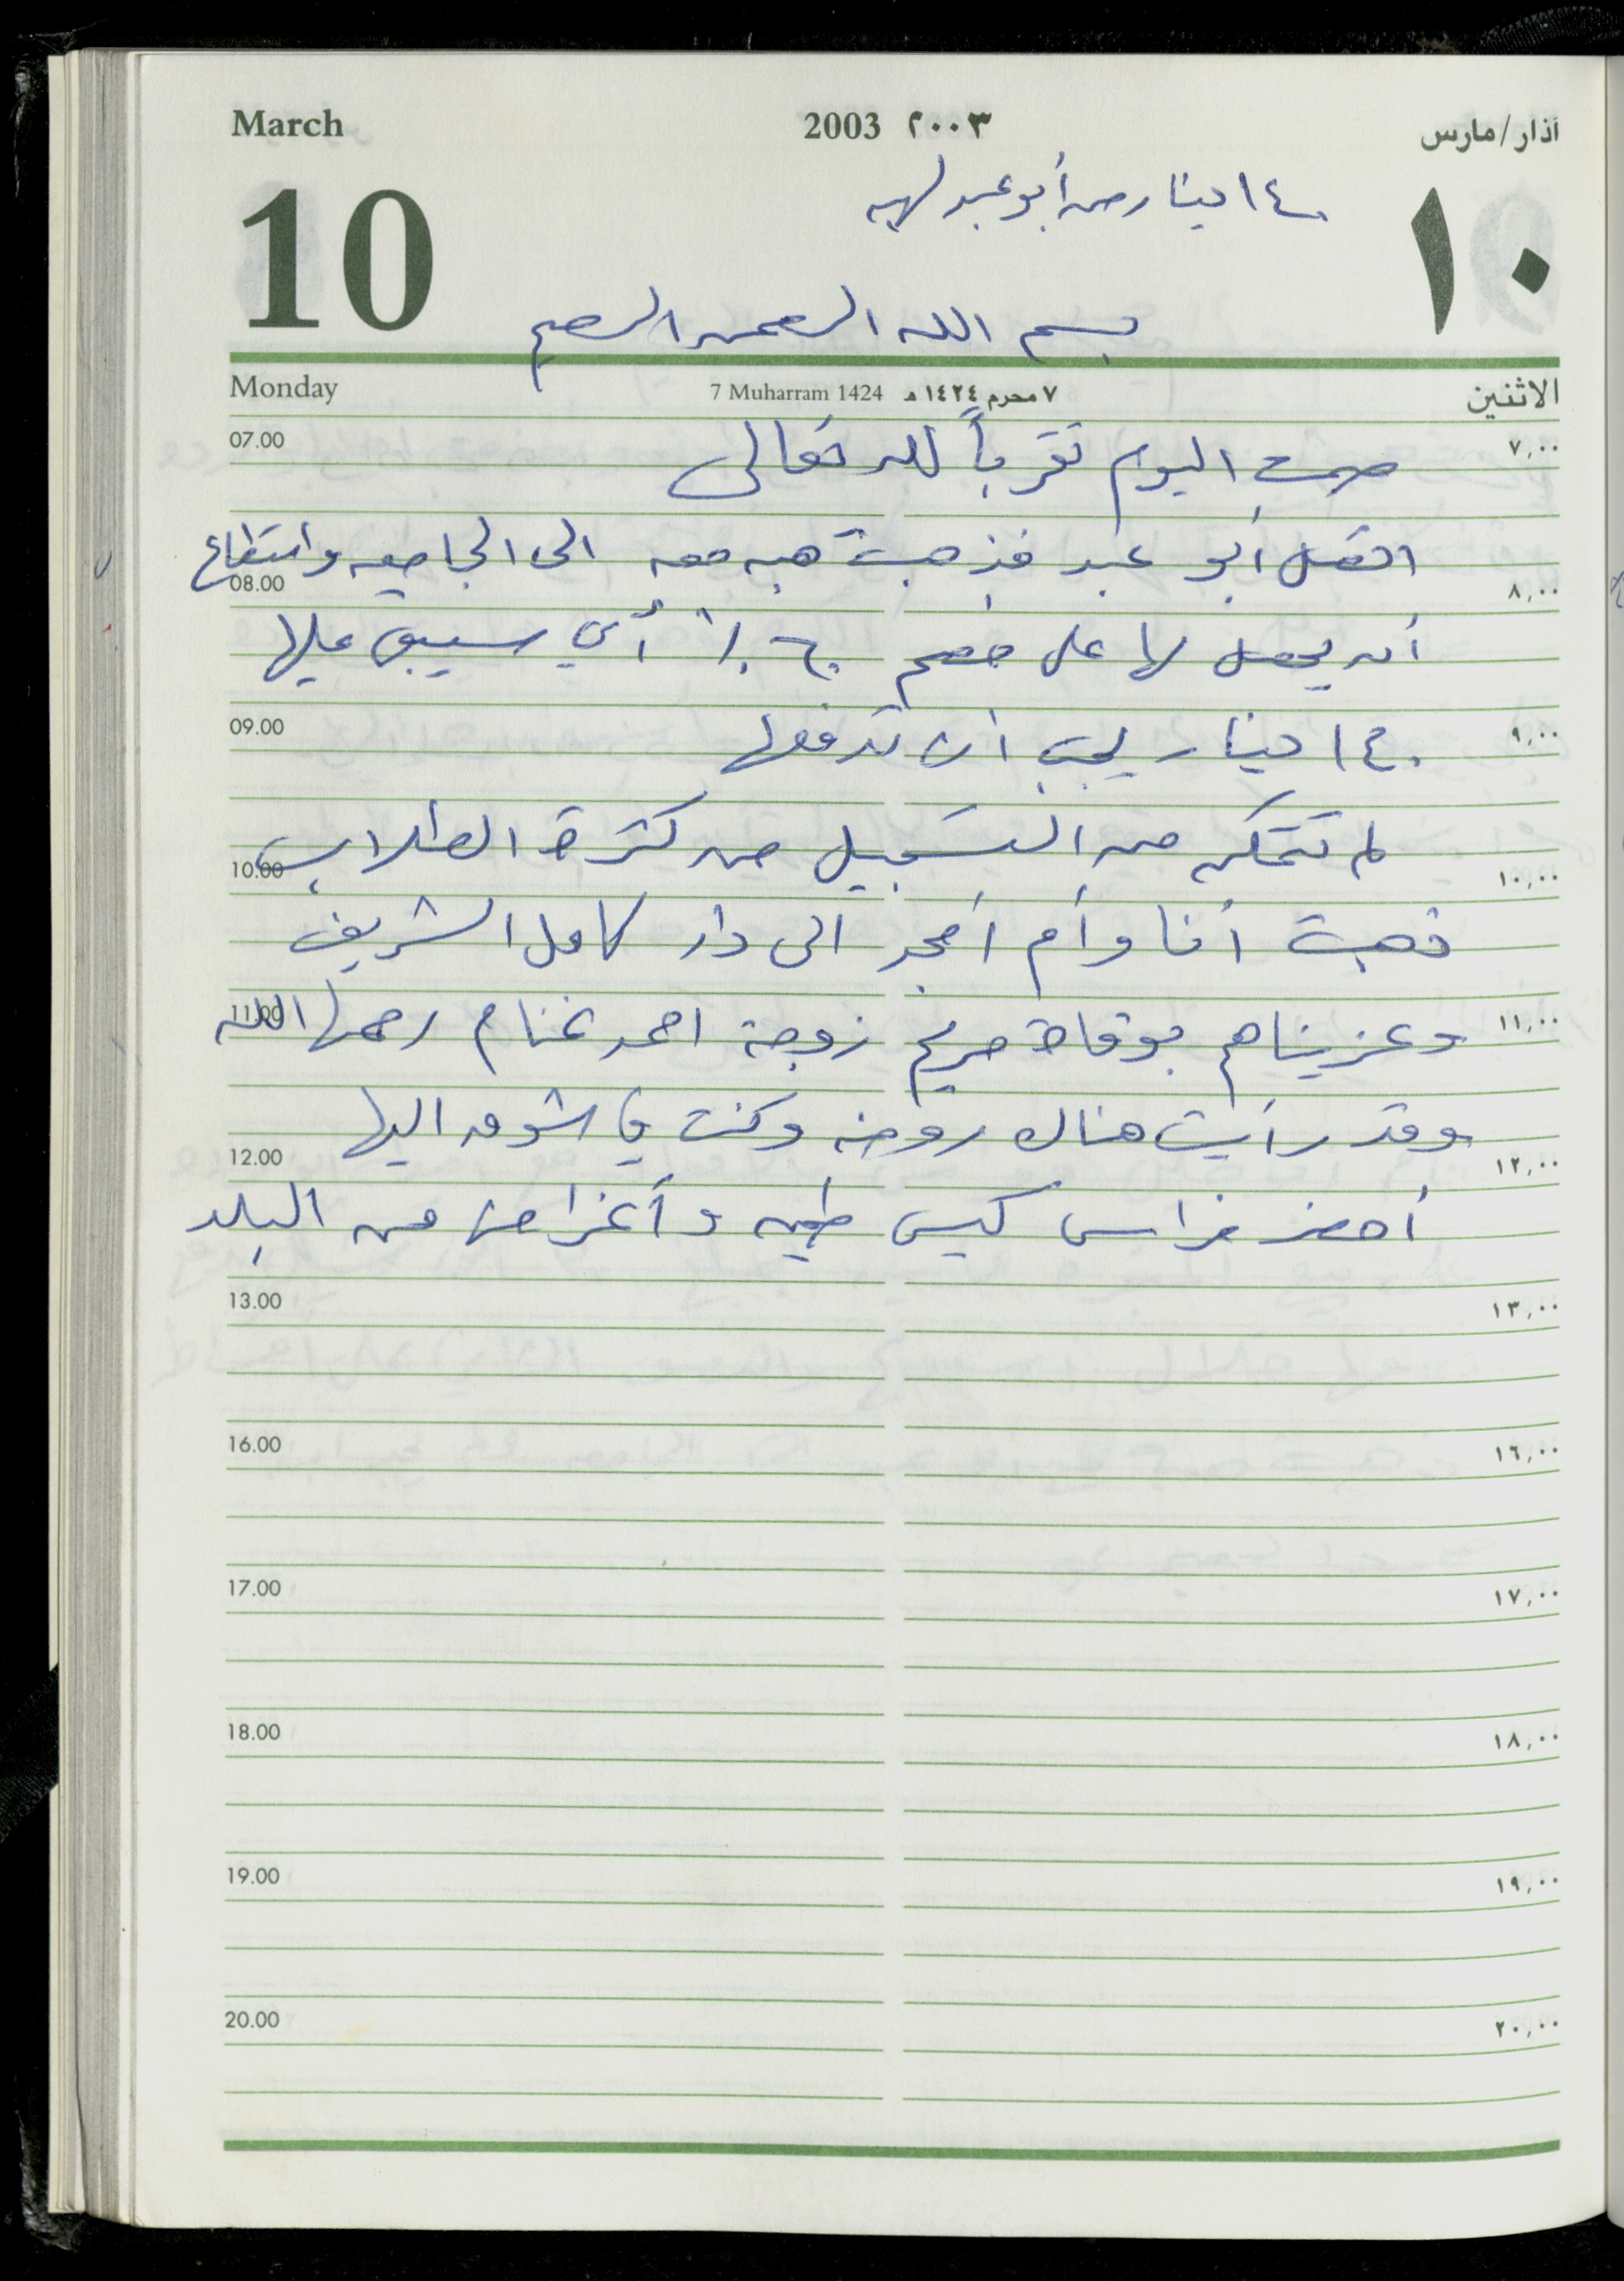 March 2003 ٢٠٠٣ آذار/مارس
10 ١٠
١٤٠ دينار من أبو عبد لهبه
بسم الله الرحمن الرحيم
Monday 7 Muharram 1424 ٧ محرم ١٤٢٤ هـ الاثنين
07.00 صمت اليوم تقرباً لله تعالى ٧,٠٠
اتصل أبو عبد فذهبت هبه معه الى الجامعه واستطاع
08.00 ٨,٠٠
أن يحصل لها على خصم ٦٠٪ أي سيبقى عليها
09.00 ١٤٠ دينار يجب ان تدفعها ٩,٠٠
لم تتمكن من التسجيل من كثرة الطلاب
10.00 ١٠,٠٠
ذهبت أنا وأم أمجد الى دار كامل الشريف
11.00 وعزيناهم بوفاة مريم زوجة احمد غنام رحمها الله ١١,٠٠
وقد رأيت هناك روضه وكنت في شوق اليها
12.00 ١٢,٠٠
أحضر فراس كيس طحين وأغراض من البلد
13.00 ١٣,٠٠
16.00 ١٦,٠٠
17.00 ١٧,٠٠
18.00 ١٨,٠٠
19.00 ١٩,٠٠
20.00 ٢٠,٠٠